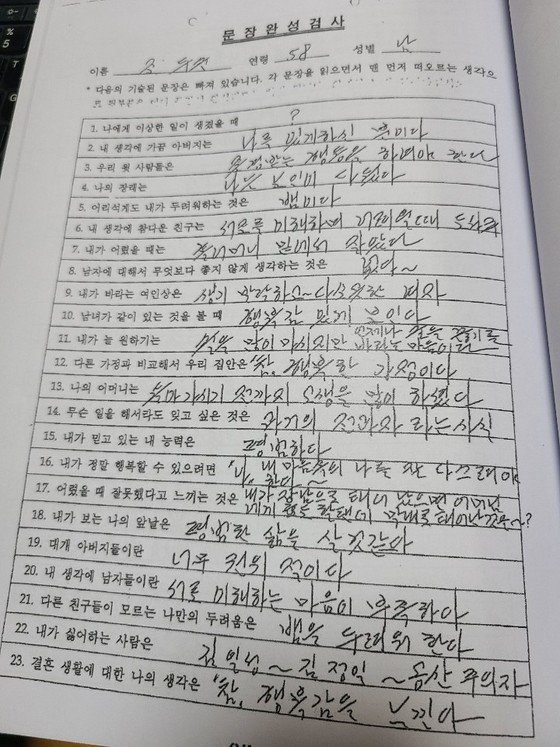 문장완성검사
이름 연령 58 성별 남
* 다음의 기술된 문장은 빠져 있습니다. 각 문장을 읽으면서 맨 먼저 떠오르는 생각으
1. 나에게 이상한 일이 생겼을 때 ?
2. 내 생각에 가끔 아버지는 나를
3. 우리 윗 사람들은 행동을 하여야 한다
4. 나의 장래는
5. 어리석게도 내가 두려워하는 것은 뱀이다
6. 내 생각에 참다운 친구는 서로를 이해하며
7. 내가 어렸을 때는 밑에서 자랐다
8. 남자에 대해서 무엇보다 좋지 않게 생각하는 것은 없다~
9. 내가 바라는 여인상은 여자
10. 남녀가 같이 있는 것을 볼 때 행복감 있게 보인다
11. 내가 늘 원하기는
12. 다른 가정과 비교해서 우리 집안은 참, 행복한 가정이다
13. 나의 어머니는 돌아가시기 전까지 고생을 많이 하셨다
14. 무슨 일을 해서라도 잊고 싶은 것은 과거의 전과자 라는 사실
15. 내가 믿고 있는 내 능력은 평범하다
16. 내가 정말 행복할 수 있으려면 나, 내 마음속의 나를 다스려야
한다~
17. 어렸을 때 잘못했다고 느끼는 것은 내가 장남으로 태어났으면
막내로 태어난 것을~?
18. 내가 보는 나의 앞날은 평범한 삶을 살것같다
19. 대개 아버지들이란 너무 권위적이다
20. 내 생각에 남자들이란 서로 이해하는 마음이 부족하다
21. 다른 친구들이 모르는 나만의 두려움은 뱀을 두려워 한다
22. 내가 싫어하는 사람은 김일성~김정일~공산주의자
23. 결혼 생활에 대한 나의 생각은 참, 행복감을 느낀다